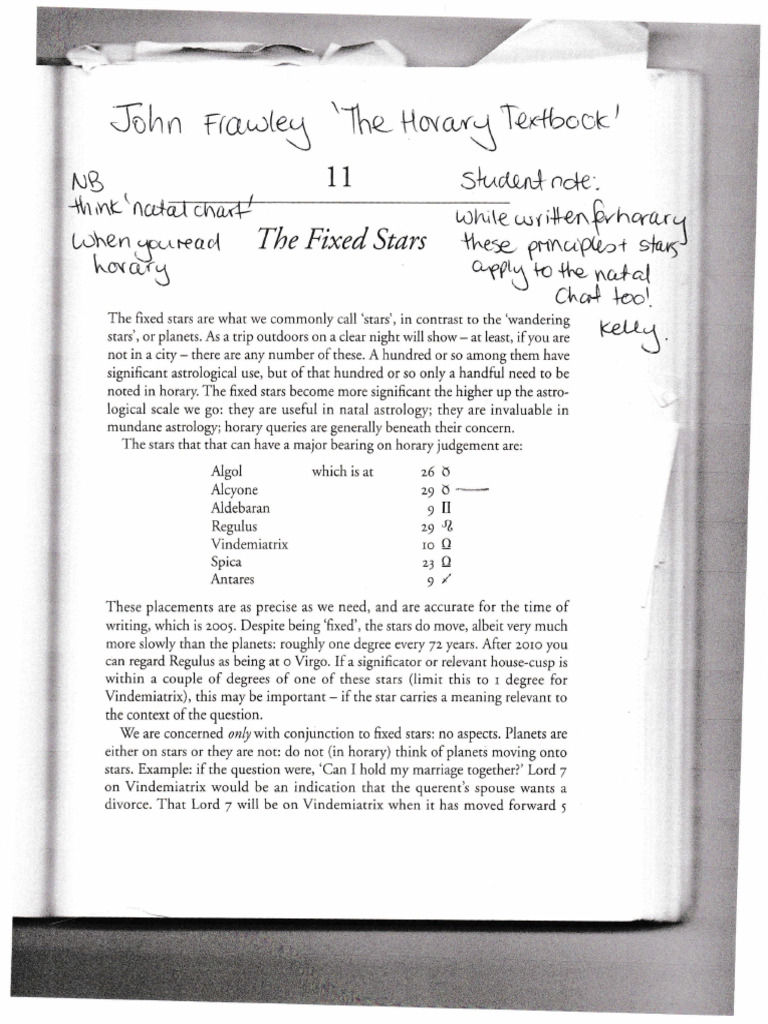 John Frawley 'The Horary Textbook'
NB
think 'natal chart'
when you read
horary
11
The Fixed Stars
Student note:
while written for horary
these principles + stars
apply to the natal
chart too!
Kelly.
The fixed stars are what we commonly call 'stars', in contrast to the 'wandering
stars', or planets. As a trip outdoors on a clear night will show – at least, if you are
not in a city – there are any number of these. A hundred or so among them have
significant astrological use, but of that hundred or so only a handful need to be
noted in horary. The fixed stars become more significant the higher up the astro-
logical scale we go: they are useful in natal astrology; they are invaluable in
mundane astrology; horary queries are generally beneath their concern.
The stars that that can have a major bearing on horary judgement are:
Algol which is at 26 ♉
Alcyone 29 ♉
Aldebaran 9 ♊
Regulus 29 ♌
Vindemiatrix 10 ♎
Spica 23 ♎
Antares 9 ♐
These placements are as precise as we need, and are accurate for the time of
writing, which is 2005. Despite being 'fixed', the stars do move, albeit very much
more slowly than the planets: roughly one degree every 72 years. After 2010 you
can regard Regulus as being at 0 Virgo. If a significator or relevant house-cusp is
within a couple of degrees of one of these stars (limit this to 1 degree for
Vindemiatrix), this may be important – if the star carries a meaning relevant to
the context of the question.
We are concerned only with conjunction to fixed stars: no aspects. Planets are
either on stars or they are not: do not (in horary) think of planets moving onto
stars. Example: if the question were, 'Can I hold my marriage together?' Lord 7
on Vindemiatrix would be an indication that the querent's spouse wants a
divorce. That Lord 7 will be on Vindemiatrix when it has moved forward 5